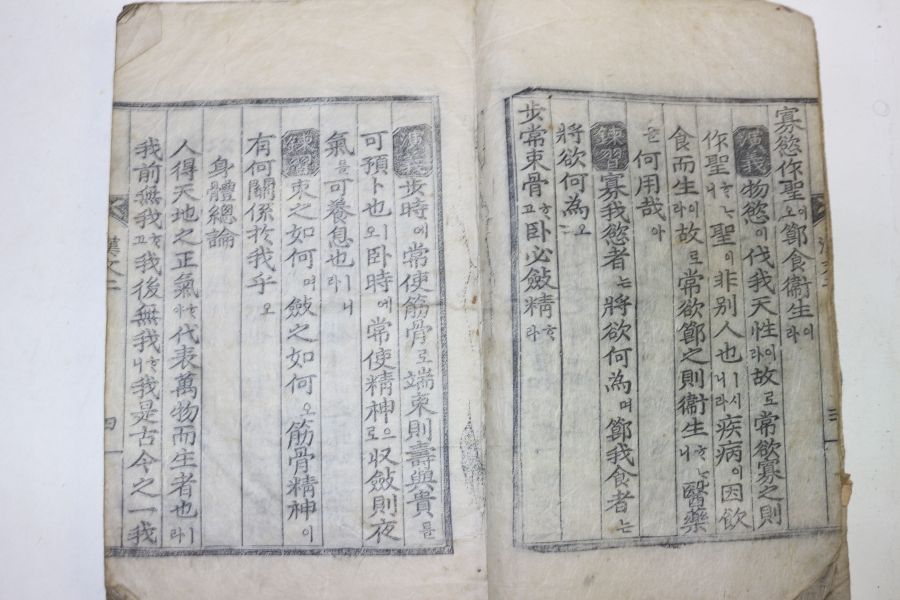 寡慾作聖이오節食衛生이라
演義物慾이伐我天性이라故로常欲寡之則
作聖ᄒᆞᄂᆞ니聖이非別人也ㅣ시니라疾病이因飮
食而生이라故로常欲節之則衛生ᄒᆞᄂᆞ니醫藥
을何用哉아
練習寡我慾者는將欲何爲며節我食者는
將欲何爲오
步常束骨ᄒᆞ고卧必斂精ᄒᆞ라
演義步時에常使筋骨로端束則壽與貴를
可預卜也ㅣ오卧時에常使精神으로收斂則夜
氣를可養息也ㅣ니라
練習束之如何며斂之如何오筋骨精神이
有何關係於我乎오
身體總論
人得天地之正氣ᄒᆞ야代表萬物而生者也ㅣ라
我前無我ᄒᆞ고我後無我ᄒᆞ니我是古今之一我
漢文二 四